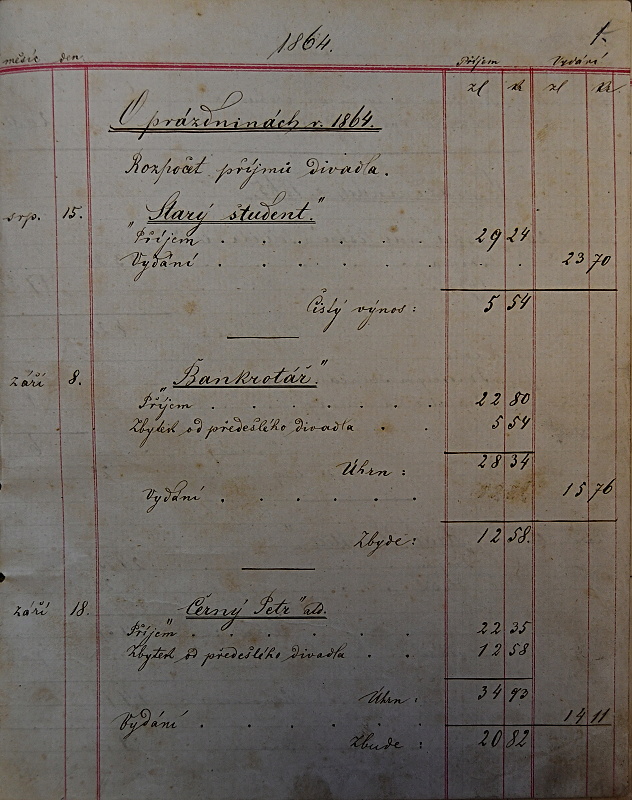 1864. 1.
měsíc den Příjem Vydání
zl kr zl kr.
O prázdninách r. 1864.
Rozpočet příjmů divadla.
srp. 15. „Starý student."
Příjem . . . . . . 29 24
Vydání . . . . . . . . 23 70
Čistý výnos: 5 54
září 8. „Bankrotář."
Příjem . . . . . . 22 80
Zbytek od předešlého divadla . . 5 54
Úhrn: 28 34
Vydání . . . . . 15 76
Zbyde: 12 58.
září 18. „Černý Petr" atd.
Příjem . . . . . . 22 35
Zbytek od předešlého divadla . . 12 58
Úhrn: 34 93
Vydání . . . . . . 14 11
Zbude: 20 82